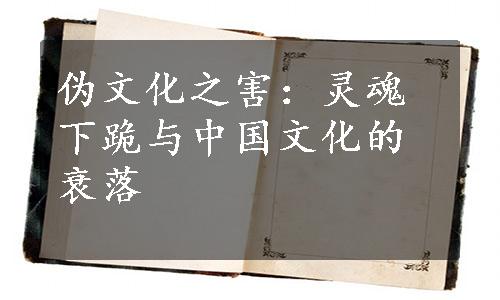 伪文化之害：灵魂
下跪与中国文化的
衰落